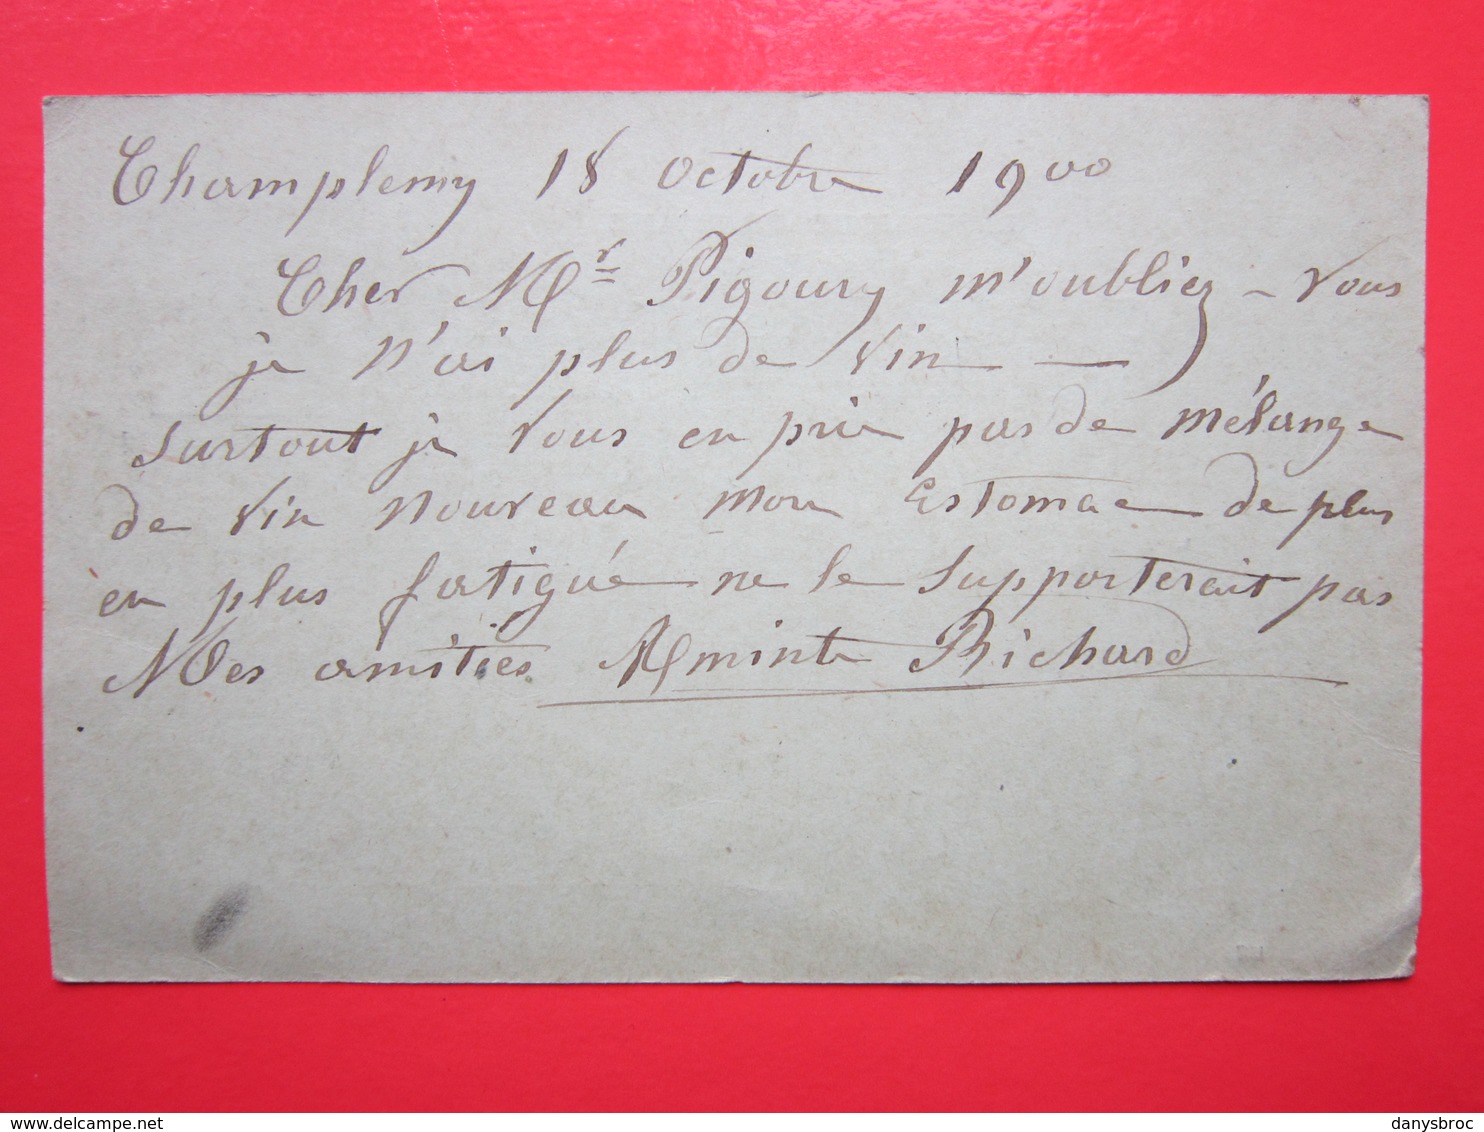 Champlemy 18 octobre 1900
Cher Mr Pigoury m'oubliez - vous
je n'ai plus de vin —
surtout je vous en prie pas de mélange
de vin nouveau mon Estomac de plus
en plus fatigué ne le supporterait pas
Mes amitiés Aminte Richard
danysbroc